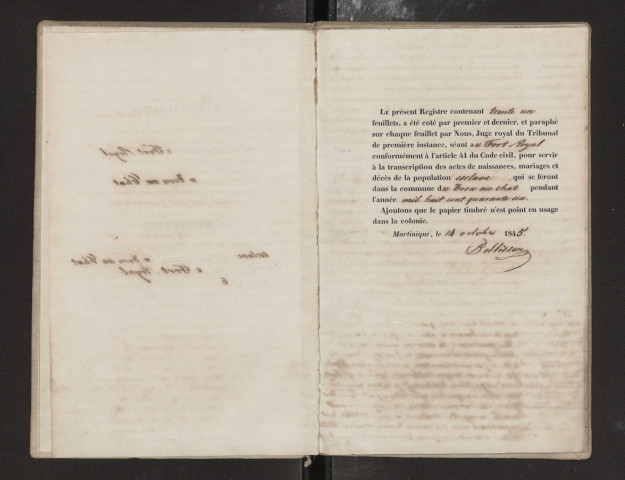 Le présent Registre contenant trente un
feuillets, a été coté par premier et dernier, et paraphé
sur chaque feuillet par Nous, Juge royal du Tribunal
de première instance, séant au Fort Royal
conformément à l'article 41 du Code civil, pour servir
à la transcription des actes de naissances, mariages et
décès de la population esclave qui se feront
dans la commune du Trou au chat pendant
l'année mil huit cent quarante six.
Ajoutons que le papier timbré n'est point en usage
dans la colonie.
Martinique, le 14 octobre 1845.